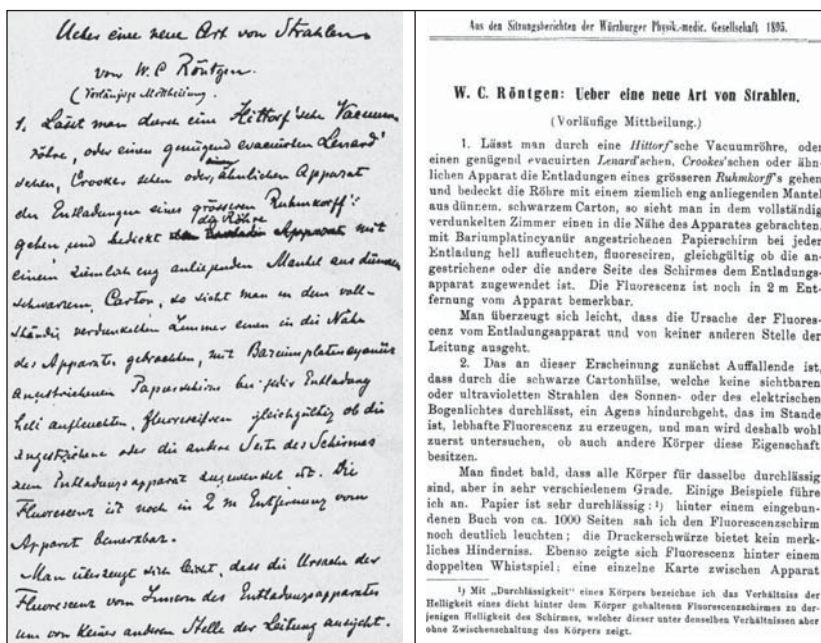 Ueber eine neue Art von Strahlen
von W. C. Röntgen.
(Vorläufige Mittheilung.
1. Lässt man durch eine Hittorf'sche Vacuum-
röhre, oder einen genügend evacuirten Lenard'
schen, Crookes'schen oder ähnlichen Apparat
die Entladungen eines grösseren Ruhmkorff's
gehen und bedeckt die Röhre Apparat mit
einem ziemlich eng anliegenden Mantel aus dünnem
schwarzem Carton, so sieht man in dem voll-
ständig verdunkelten Zimmer einen in die Nähe
des Apparates gebrachten, mit Bariumplatincyanür
angestrichenen Papierschirm bei jeder Entladung
hell aufleuchten, fluoresciren gleichgültig ob die
angestrichene oder die andere Seite des Schirmes
dem Entladungsapparat zugewendet ist. Die
Fluorescenz ist noch in 2 m Entfernung vom
Apparat bemerkbar.
Man überzeugt sich leicht, dass die Ursache der
Fluorescenz vom Innern des Entladungsapparates
und von keiner anderen Stelle der Leitung ausgeht.
Aus den Sitzungsberichten der Würzburger Physik.-medic. Gesellschaft 1895.
W. C. Röntgen: Ueber eine neue Art von Strahlen.
(Vorläufige Mittheilung.)
1. Lässt man durch eine Hittorf'sche Vacuumröhre, oder
einen genügend evacuirten Lenard'schen, Crookes'schen oder ähn-
lichen Apparat die Entladungen eines grösseren Ruhmkorff's gehen
und bedeckt die Röhre mit einem ziemlich eng anliegenden Mantel
aus dünnem, schwarzem Carton, so sieht man in dem vollständig
verdunkelten Zimmer einen in die Nähe des Apparates gebrachten,
mit Bariumplatincyanür angestrichenen Papierschirm bei jeder
Entladung hell aufleuchten, fluoresciren, gleichgültig ob die an-
gestrichene oder die andere Seite des Schirmes dem Entladungs-
apparat zugewendet ist. Die Fluorescenz ist noch in 2 m Ent-
fernung vom Apparat bemerkbar.
Man überzeugt sich leicht, dass die Ursache der Fluores-
cenz vom Entladungsapparat und von keiner anderen Stelle der
Leitung ausgeht.
2. Das an dieser Erscheinung zunächst Auffallende ist,
dass durch die schwarze Cartonhülse, welche keine sichtbaren
oder ultravioletten Strahlen des Sonnen- oder des elektrischen
Bogenlichtes durchlässt, ein Agens hindurchgeht, das im Stande
ist, lebhafte Fluorescenz zu erzeugen, und man wird deshalb wohl
zuerst untersuchen, ob auch andere Körper diese Eigenschaft
besitzen.
Man findet bald, dass alle Körper für dasselbe durchlässig
sind, aber in sehr verschiedenem Grade. Einige Beispiele führe
ich an. Papier ist sehr durchlässig: ¹) hinter einem eingebun-
denen Buch von ca. 1000 Seiten sah ich den Fluorescenzschirm
noch deutlich leuchten; die Druckerschwärze bietet kein merk-
liches Hinderniss. Ebenso zeigte sich Fluorescenz hinter einem
doppelten Whistspiel; eine einzelne Karte zwischen Apparat
¹) Mit „Durchlässigkeit" eines Körpers bezeichne ich das Verhältniss der
Helligkeit eines dicht hinter dem Körper gehaltenen Fluorescenzschirmes zu der-
jenigen Helligkeit des Schirmes, welcher dieser unter denselben Verhältnissen aber
ohne Zwischenschaltung des Körpers zeigt.